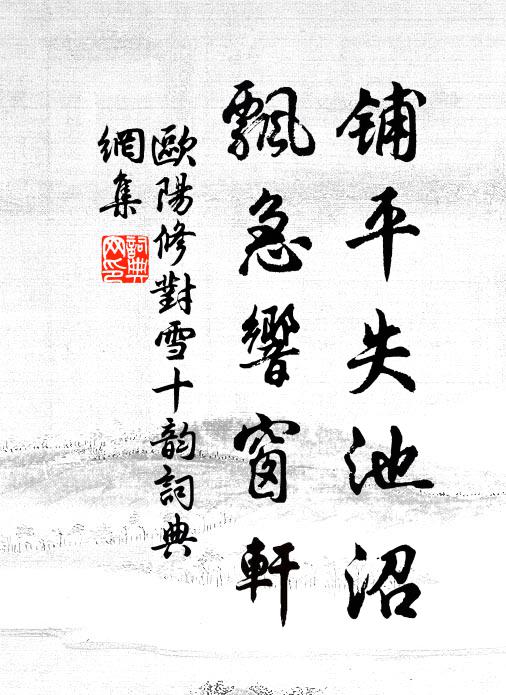 铺平失池沼
飄急響窗軒
歐陽修對雪十韵詞典
網集
詞典
网印